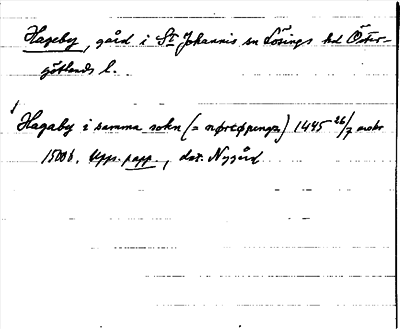 Hageby, gård i St Johannis sn Lösings hd Öster-
götlands l.
Hagaby i samma sokn (= nørcøpunga) 1445 26/7 avskr
1500 b. Upps. papp., dat. Nygård